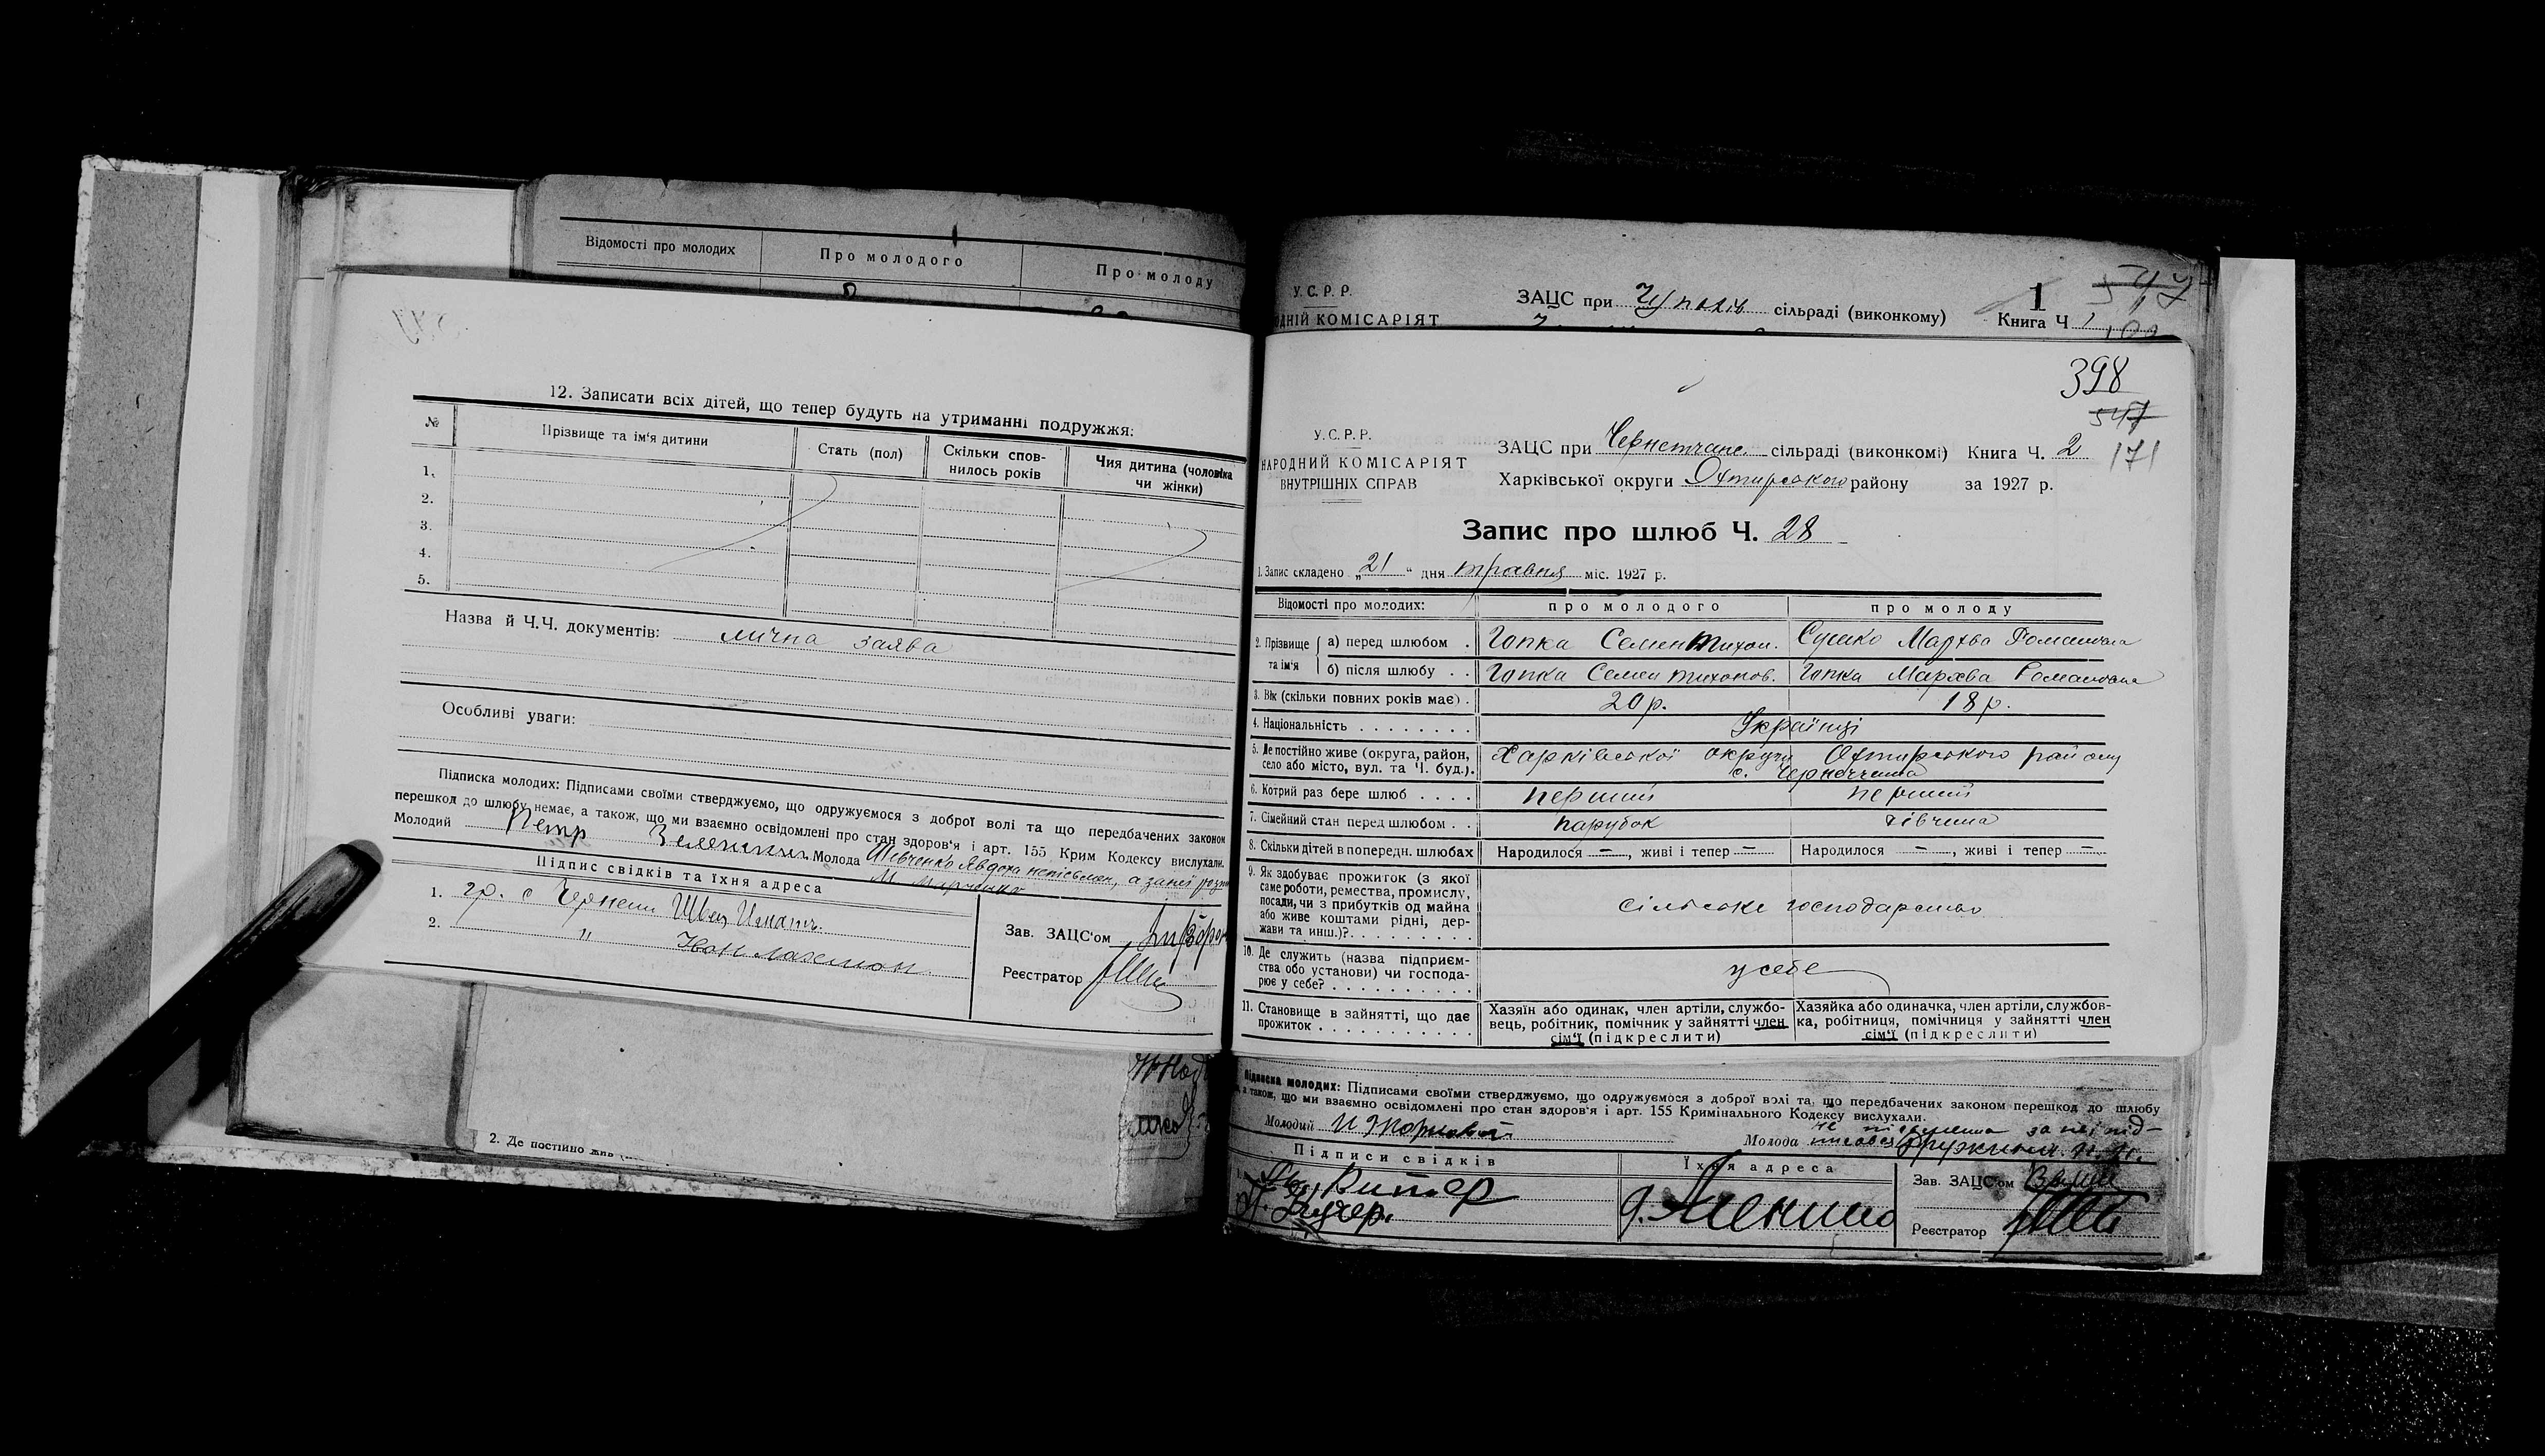 Відомості про молодих
Про молодого
Про молоду
12. Записати всіх дітей, що тепер будуть на утриманні подружжя:
№
Прізвище та ім'я дитини
Стать (пол)
Скільки спов-
нилось років
Чия дитина (чоловіка
чи жінки)
1.
2.
3.
4.
5.
Назва й Ч.Ч. документів: лична заява
Особливі уваги:
Підписка молодих: Підписами своїми стверджуємо, що одружуємося з доброї волі та що передбачених законом
перешкод до шлюбу немає, а також, що ми взаємно освідомлені про стан здоров'я і арт. 155 Крим Кодексу вислухали.
Молодий Петр Молода Шевченко Явдоха неписьмен, а за неї
Підпис свідків та їхня адреса
1. гр. с Чернетч Швец Игнат
2. " Іван
Зав. ЗАЦС'ом
Реєстратор
2. Де постійно жив
У.С.Р.Р.
ЗАЦС при сільраді (виконкому)
1
547
НАРОДНІЙ КОМІСАРІЯТ
Книга Ч 1
398
547
171
У.С.Р.Р.
НАРОДНИЙ КОМІСАРІЯТ
ВНУТРІШНІХ СПРАВ
ЗАЦС при Чернетчанс. сільраді (виконкомі) Книга Ч. 2
Харківської округи Охтирського району за 1927 р.
Запис про шлюб Ч. 28
1. Запис складено „21“ дня травня міс. 1927 р.
Відомості про молодих:
про молодого
про молоду
2. Прізвище та ім'я
а) перед шлюбом . Гопка Семен Тихон. Сушко Мархва Романовна
б) після шлюбу . . Гопка Семен Тихонов. Гопка Мархва Романовна
3. Вік (скільки повних років має) . 20 р. 18 р.
4. Національність . . . . . . . . Українці
5. Де постійно живе (округа, район,
село або місто, вул. та Ч. буд.). Харківської округи Охтирського району
с. Чернеччина
6. Котрий раз бере шлюб . . . . перший перший
7. Сімейний стан перед шлюбом . . парубок дівчина
8. Скільки дітей в попередн. шлюбах Народилося —, живі і тепер — Народилося —, живі і тепер —
9. Як здобуває прожиток (з якої
саме роботи, ремества, промислу,
посади, чи з прибутків од майна
або живе коштами рідні, дер-
жави та инш.)?. . . . . . . . . сільське господарство
10. Де служить (назва підприєм-
ства обо установи) чи господа-
рює у себе? . . . . . . . . . . у себе
11. Становище в зайнятті, що дає
прожиток . . . . . . . . . . . .
Хазяїн або одинак, член артіли, службо-
вець, робітник, помічник у зайнятті член
сім'ї (підкреслити)
Хазяйка або одиначка, член артіли, службов-
ка, робітниця, помічниця у зайнятті член
сім'ї (підкреслити)
Підписка молодих: Підписами своїми стверджуємо, що одружуємося з доброї волі та, що передбачених законом перешкод до шлюбу
а також, що ми взаємно освідомлені про стан здоров'я і арт. 155 Кримінального Кодексу вислухали.
Молодий
Молода
Підписи свідків
Їхня адреса
Зав. ЗАЦС'ом
Реєстратор